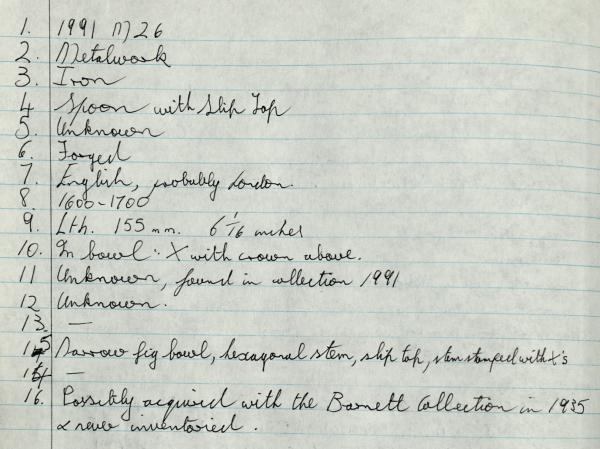 1. 1991 M26
2. Metalwork
3. Iron
4 Spoon with Slip Top
5. Unknown
6. Forged
7. English, probably London.
8. 1600-1700
9. Lth. 155 mm. 6 1/16 inches
10. In bowl: X with crown above.
11 Unknown, found in collection 1991
12 Unknown.
13. —
15 Narrow fig bowl, hexagonal stem, slip top, stem stamped with X's
14 —
16. Possibly acquired with the Barnett Collection in 1935
& never inventoried.